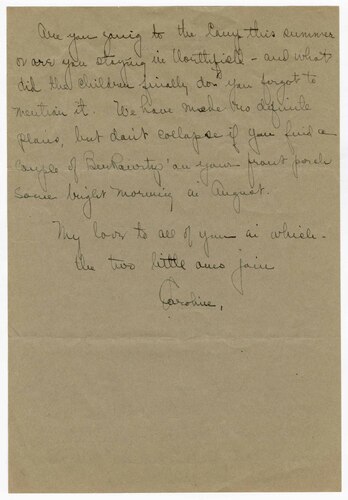 Are you going to the Camp this summer
or are you staying in Northfield - and what
did the children finally do? You forgot to
mention it. We have made no definite
plans, but don't collapse if you find a
couple of on your front porch
some bright morning in August.
My love to all of you in which
the two little ones join
Caroline.